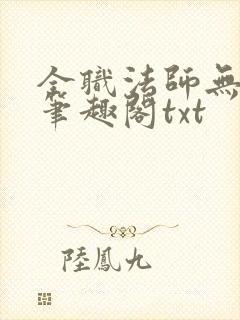 全職法師無
筆趣閣txt
陸鳳九